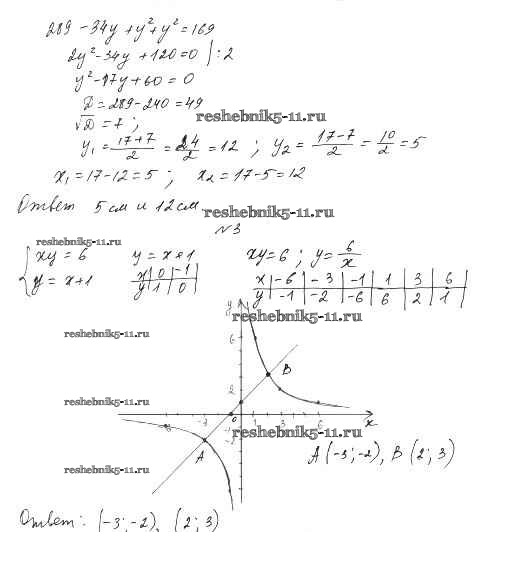 289 - 34y + y² + y² = 169
2y² - 34y + 120 = 0 | : 2
y² - 17y + 60 = 0
D = 289 - 240 = 49
√D = 7 ;
reshebnik5-11.ru
y₁ = 17+7/2 = 24/2 = 12 ; y₂ = 17-7/2 = 10/2 = 5
x₁ = 17 - 12 = 5 ; x₂ = 17 - 5 = 12
Ответ 5 см и 12 см
reshebnik5-11.ru
№3
reshebnik5-11.ru
xy = 6 y = x + 1 xy = 6 ; y = 6/x
y = x + 1
x | 0 | -1
y | 1 | 0
x | -6 | -3 | -1 | 1 | 3 | 6
y | -1 | -2 | -6 | 6 | 2 | 1
reshebnik5-11.ru
y
reshebnik5-11.ru
6
B
2
reshebnik5-11.ru
-3 0 1 3 6 x
reshebnik5-11.ru
A
A (-3; -2), B (2; 3)
reshebnik5-11.ru
Ответ: (-3; -2), (2; 3)